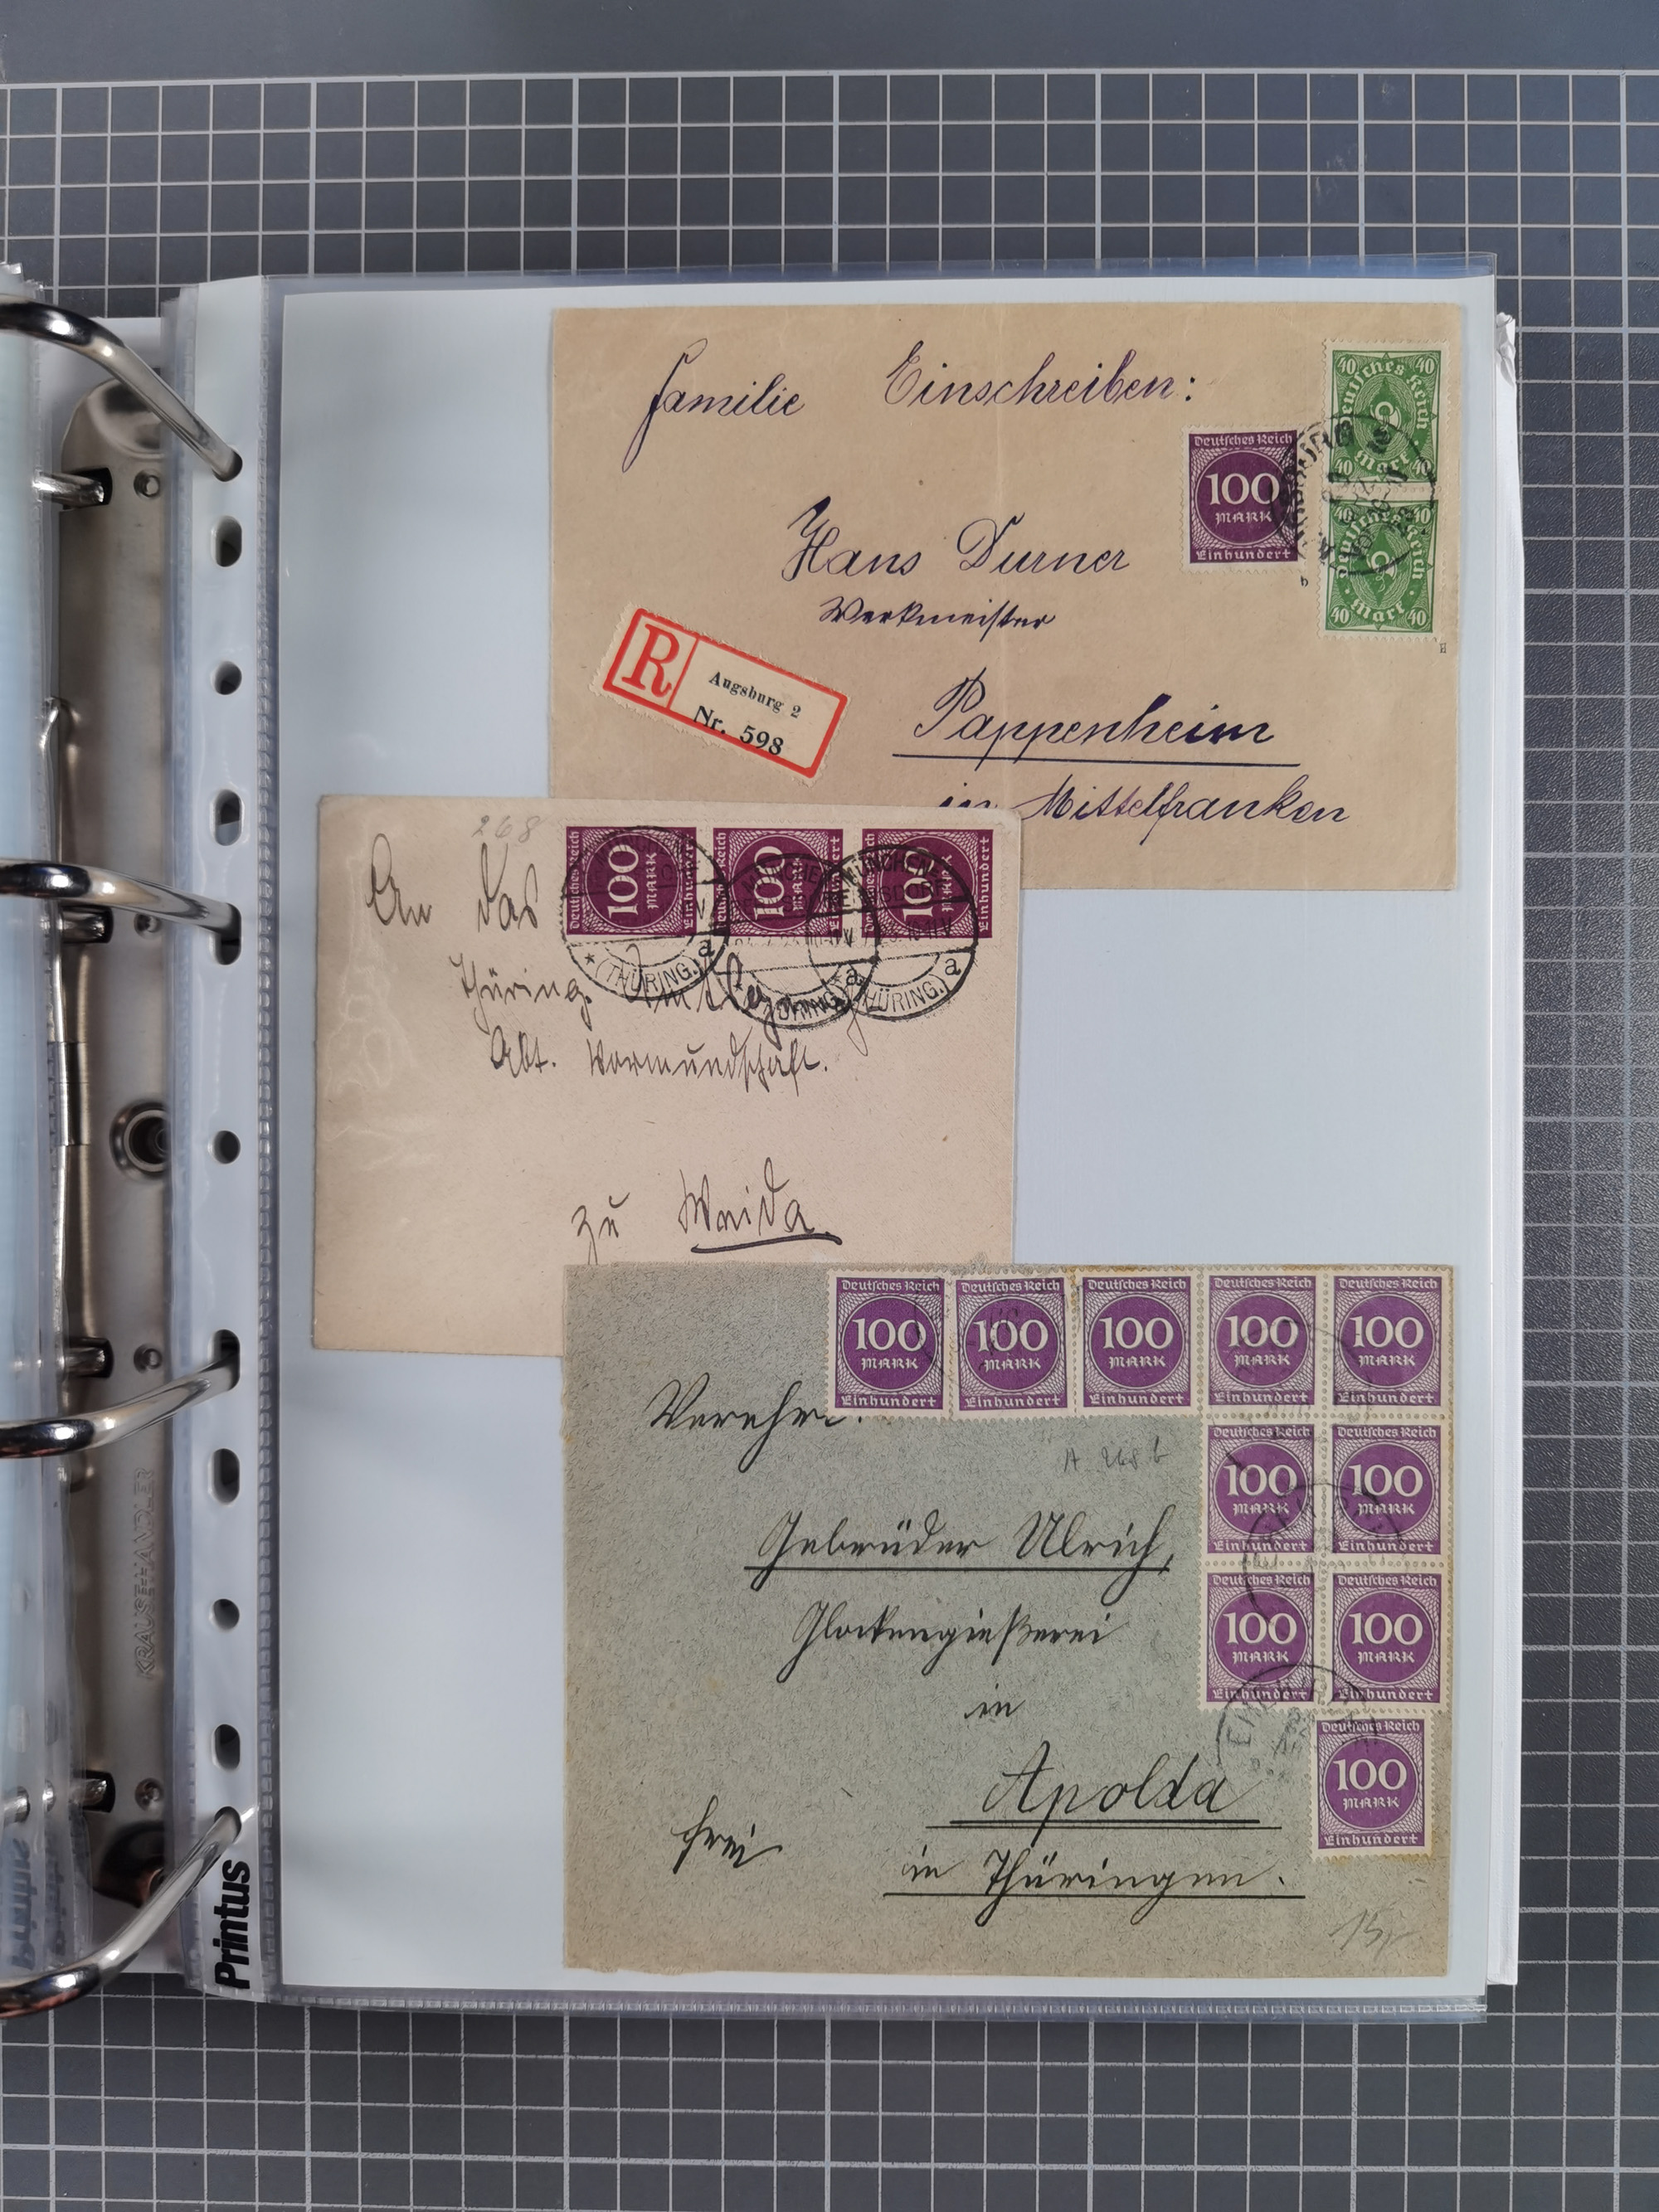 Familie Einschreiben:
Hans Durner
Werkmeister
Pappenheim
in Mittelfranken
R
Augsburg 2
Nr. 598
Deutsches Reich
100
MARK
Einhundert
b
40 40
Deutsches Reich
40 Mark 40
40 40
Deutsches Reich
40 Mark 40
H
268
An das
Thüring.
Abt. Vormundschaft.
zu Weida.
Deutsches Reich
100
MARK
Einhundert
Deutsches Reich
100
MARK
Einhundert
Deutsches Reich
100
MARK
Einhundert
MÜNCHEN-
(THÜRING.) a
a
MÜNCHEN-
BERNSDORF
(THÜRING.) a
Deutsches Reich Deutsches Reich Deutsches Reich Deutsches Reich Deutsches Reich
100 100 100 100 100
MARK MARK MARK MARK MARK
Einhundert Einhundert Einhundert Einhundert Einhundert
Deutsches Reich Deutsches Reich
100 100
MARK MARK
Einhundert Einhundert
Deutsches Reich Deutsches Reich
100 100
MARK MARK
Einhundert Einhundert
Deutsches Reich
100
MARK
Einhundert
A 268 b
Gebrüder Ulrich,
Glockengießerei
in
Apolda
in Thüringen.
frei
KRAUSE-HANDLER
Printus